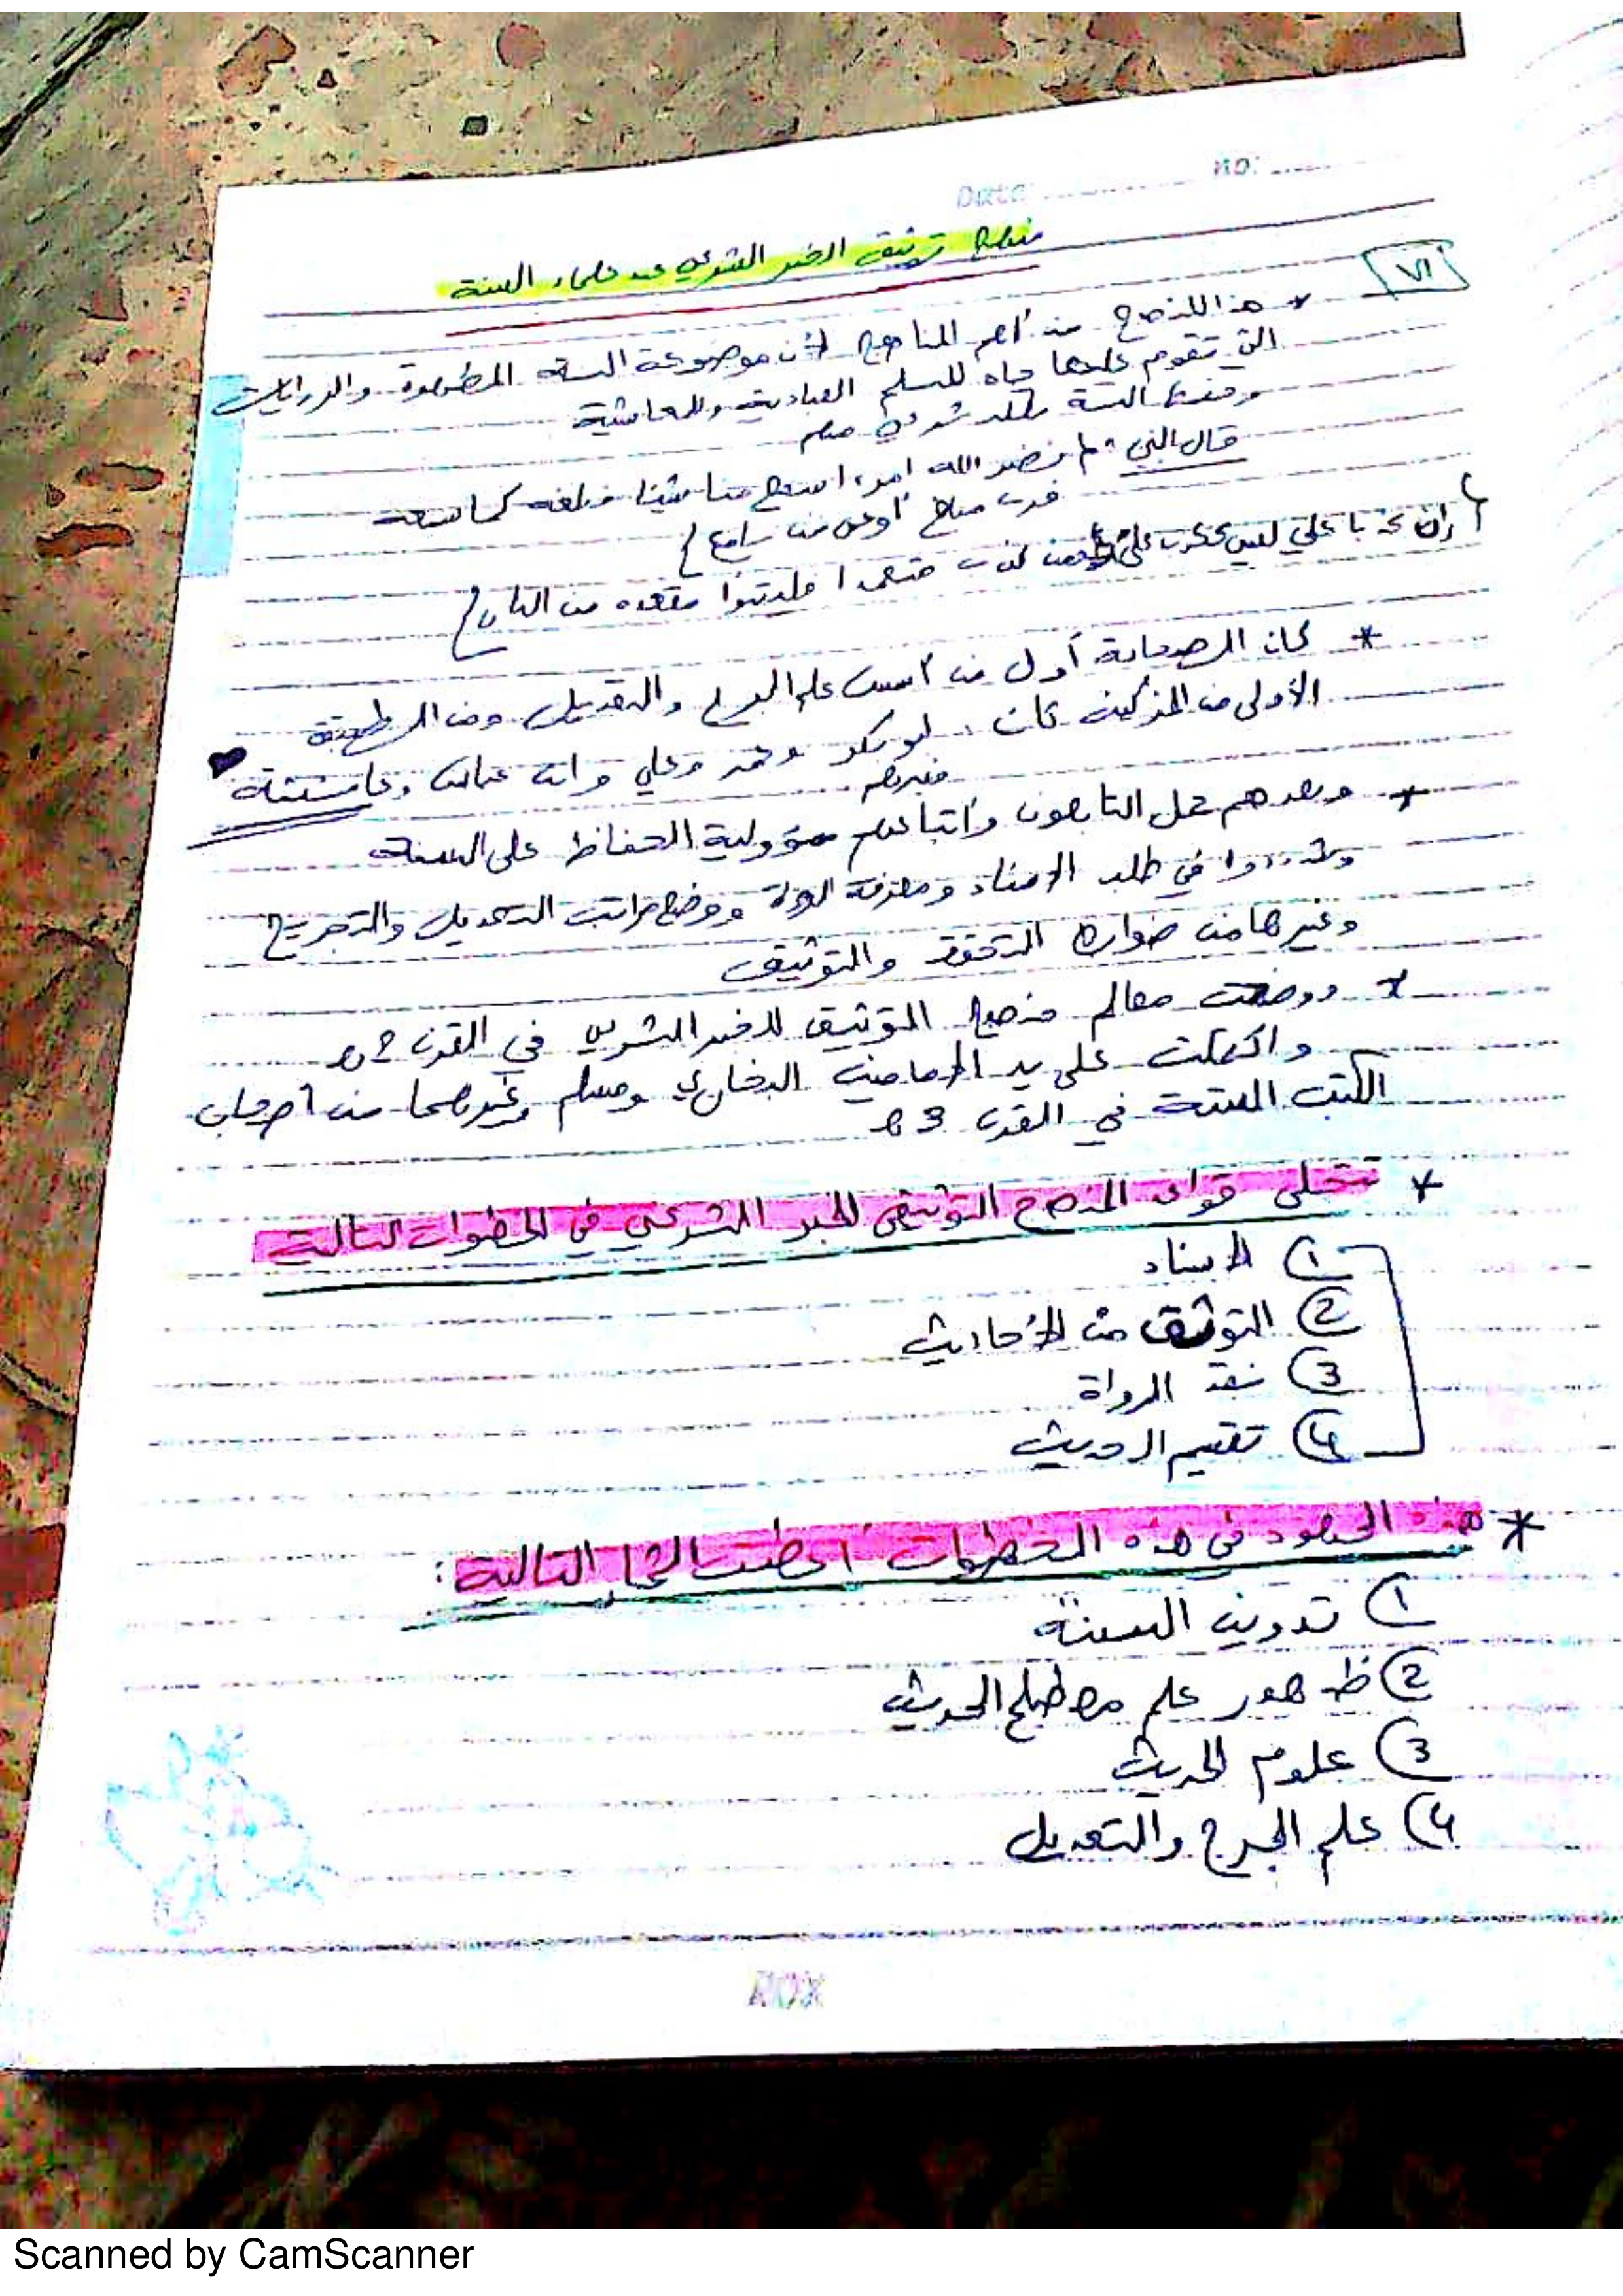 No: ........
Date: ............
منهج توثيق الخبر الشرعي عند علماء السنة
VI
* هذا المنهج من أهم المناهج لأن موضوعه السنة المطهرة والروايات
التي تقوم عليها حياة المسلم العبادية والمعاشية
السنة
قال النبي " نضر الله امرءا سمع منا شيئا فبلغه كما سمعه
فرب مبلغ أوعى من سامع }
{ إن كذبا علي ليس ككذب على فمن كذب متعمدا فليتبوأ مقعده من النار }
* كان الصحابة أول من أسس علم الجرح والتعديل ومن الطبقة
الأولى من المزكين كان : أبو بكر وعمر وعلي وابن عباس وعائشة
وغيرهم
* وبعدهم حمل التابعون وأتباعهم مسؤولية الحفاظ على السنة
وشددوا في طلب الإسناد ومعرفة الرواة ووضع مراتب التعديل والتجريح
وغيرها من ضوابط التحقق والتوثيق
* ووضحت معالم منهج التوثيق للخبر الشرعي في القرن 2 هـ
واكتملت على يد الإمامين البخاري ومسلم وغيرهما من أصحاب
الكتب الستة في القرن 3 هـ
* تتجلى قواعد المنهج التوثيقي للخبر الشرعي في الخطوات التالية
1 الإسناد
2 التوثق من الأحاديث
3 نقد الرواة
4 تقييم الحديث
* هذه الجهود في هذه الخطوات أعطت الثمار التالية :
1 تدوين السنة
2 ظهور علم مصطلح الحديث
3 علوم الحديث
4 علم الجرح والتعديل
ROX
Scanned by CamScanner